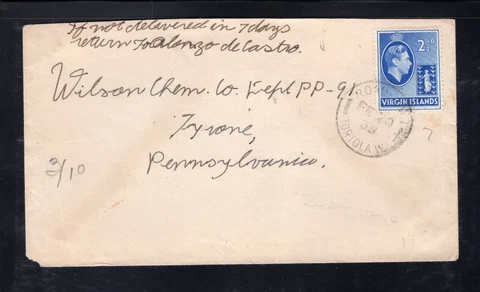 If not delivered in 7 days
return To Alonzo de Castro.
Wilson Chem. Co. Dept PP-91
Tyrone,
Pennsylvania.
3/10
7
2½D
VIRGIN ISLANDS
ROAD
FE 20
39
TORTOLA